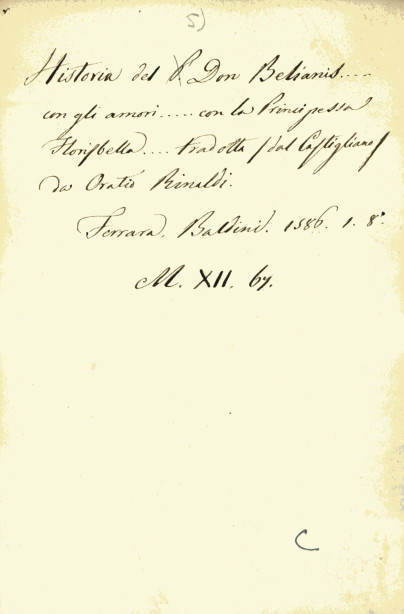 5)
Historia del P. Don Belianis.....
con gli amori..... con la Principessa
Florisbella.... tradotta /dal Castigliano/
da Oratio Rinaldi.
Ferrara. Baldini. 1586. 1. 8°
M. XII. 67.
C